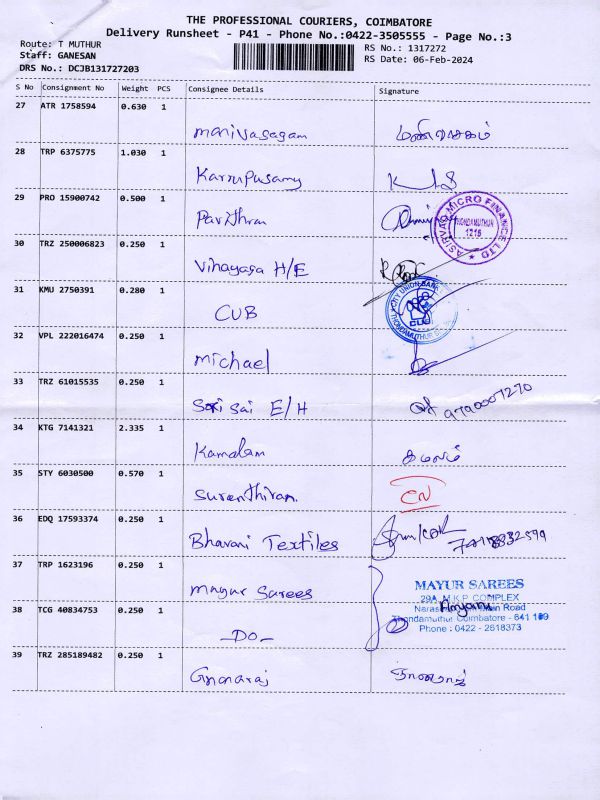 THE PROFESSIONAL COURIERS, COIMBATORE
Delivery Runsheet - P41 - Phone No.:0422-3505555 - Page No.:3
Route: T MUTHUR
Staff: GANESAN
DRS No.: DCJB131727203
RS No.: 1317272
RS Date: 06-Feb-2024
S No Consignment No Weight PCS Consignee Details Signature
27 ATR 1758594 0.630 1
manivasagam
28 TRP 6375775 1.030 1
Karrupusamy
29 PRO 15900742 0.500 1
Pavithran
ASIRVAD MICRO FINANCE LTD
THONDAMUTHUR
1216
30 TRZ 250006823 0.250 1
Vihayaga H/E
31 KMU 2750391 0.280 1
CUB
CITY UNION BANK
CUB
THONDAMUTHUR
32 VPL 222016474 0.250 1
michael
33 TRZ 61015535 0.250 1
Sai E/H
34 KTG 7141321 2.335 1
Kamalam கமலம்
35 STY 6030500 0.570 1
Surenthiran
36 EDQ 17593374 0.250 1
Bharani Textiles
37 TRP 1623196 0.250 1
mayur Sarees
MAYUR SAREES
29A, M.K.P COMPLEX
Main Road
Thondamuthur Coimbatore - 641 109
Phone : 0422 - 2618373
38 TCG 40834753 0.250 1
-DO-
39 TRZ 285189482 0.250 1
Gnanaraj ஞானராஜ்